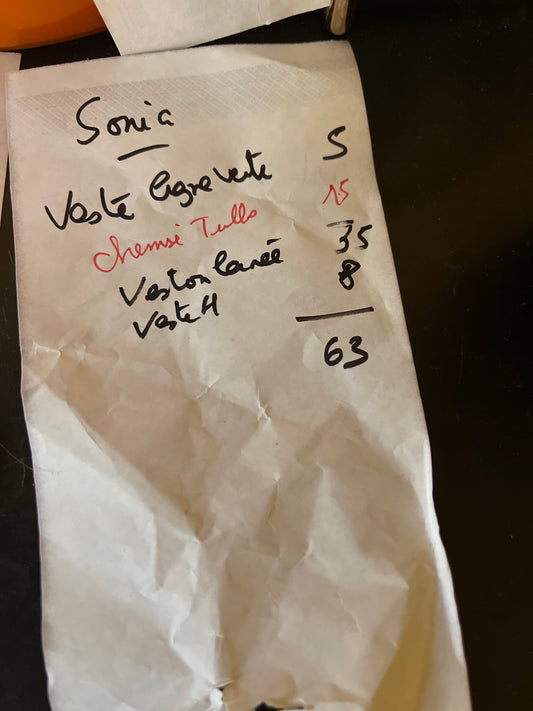 Sonia
Veste legre verte 5
chemse Tulls 15
Veston carée 35
Veste H 8
63